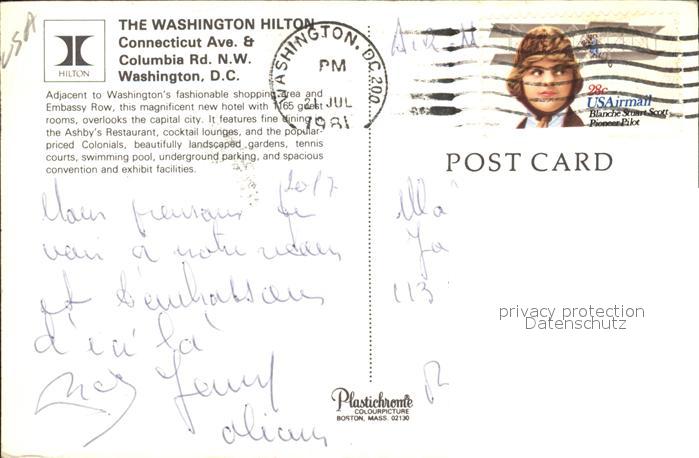 USA
THE WASHINGTON HILTON
Connecticut Ave. &
Columbia Rd. N.W.
Washington, D.C.
HILTON
Adjacent to Washington's fashionable shopping area and
Embassy Row, this magnificent new hotel with 1165 guest
rooms, overlooks the capital city. It features fine dining in
the Ashby's Restaurant, cocktail lounges, and the popular-
priced Colonials, beautifully landscaped gardens, tennis
courts, swimming pool, underground parking, and spacious
convention and exhibit facilities.
WASHINGTON, DC 200
PM
21 JUL
1981
28c
USAirmail
Blanche Stuart Scott
Pioneer Pilot
POST CARD
20/7
Nous pensons
à notre
et t'embrassons
d'ici là
113
privacy protection
Datenschutz
Plastichrome
COLOURPICTURE
BOSTON, MASS. 02130